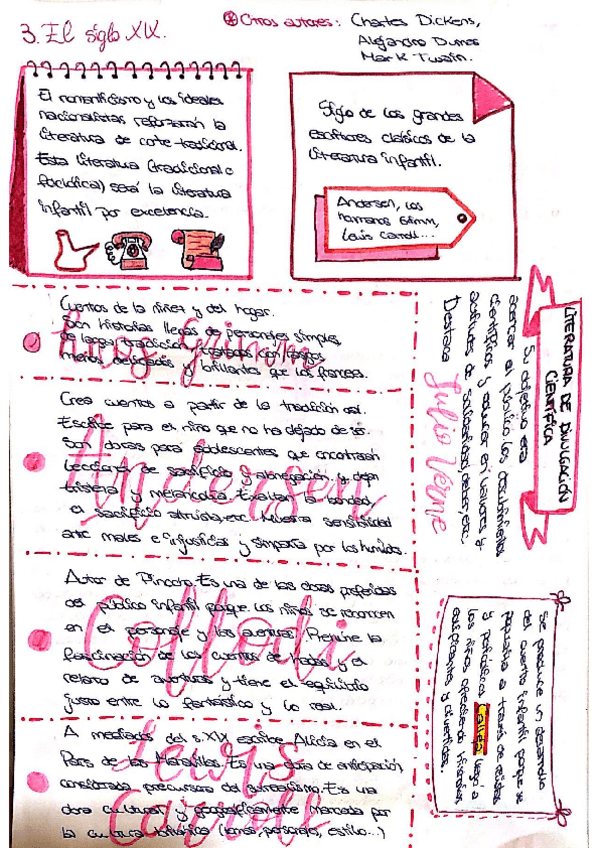 3. El siglo XIX.
⊛ Otros autores: Charles Dickens,
Alejandro Dumas
Mark Twain.
El romanticismo y los ideales
nacionalistas reforzarán la
literatura de corte tradicional.
Esta literatura (tradicional o
folclórica) será la literatura
infantil por excelencia.
Siglo de los grandes
escritores clásicos de la
literatura infantil.
Andersen, los
hermanos Grimm,
Lewis Carroll...
Cuentos de la niñez y del hogar.
Son historias llenas de personajes simples,
de larga tradición, contadas con rasgos
menos delicados y brillantes que los francés.
Grimm
Crea cuentos a partir de la tradición oral.
Escribe para el niño que no ha dejado de ser.
Son obras para adolescentes que encontrarán
lecciones de sacrificio y abnegación, y dejan
tristeza y melancolía. Exaltan la bondad,
el sacrificio altruista, etc. Muestra sensibilidad
ante males e injusticias y simpatía por los humildes.
Andersen
Autor de Pinocho. Es una de las obras preferidas
del público infantil porque los niños se reconocen
en el personaje y las aventuras. Reúne la
fascinación de los cuentos de hadas y el
relato de aventuras y tiene el equilibrio
justo entre lo fantástico y lo real.
Collodi
A mediados del s.XIX escribe Alicia en el
País de las Maravillas. Es una obra de anticipación,
considerada precursora del surrealismo. Es una
obra cultural y geográficamente marcada por
la cultura británica (temas, personajes, estilo...)
Lewis
Carroll
LITERATURA DE DIVULGACIÓN
CIENTÍFICA
Su objetivo era
acercar al público los descubrimientos
científicos y educar en valores y
actitudes de solidaridad, deber, etc.
Destaca Julio Verne
Se produce un desarrollo
del cuento infantil porque se
populariza a través de revistas
y periódicos. Calleja llegó a
los niños ofreciendo historias
y divertidas.